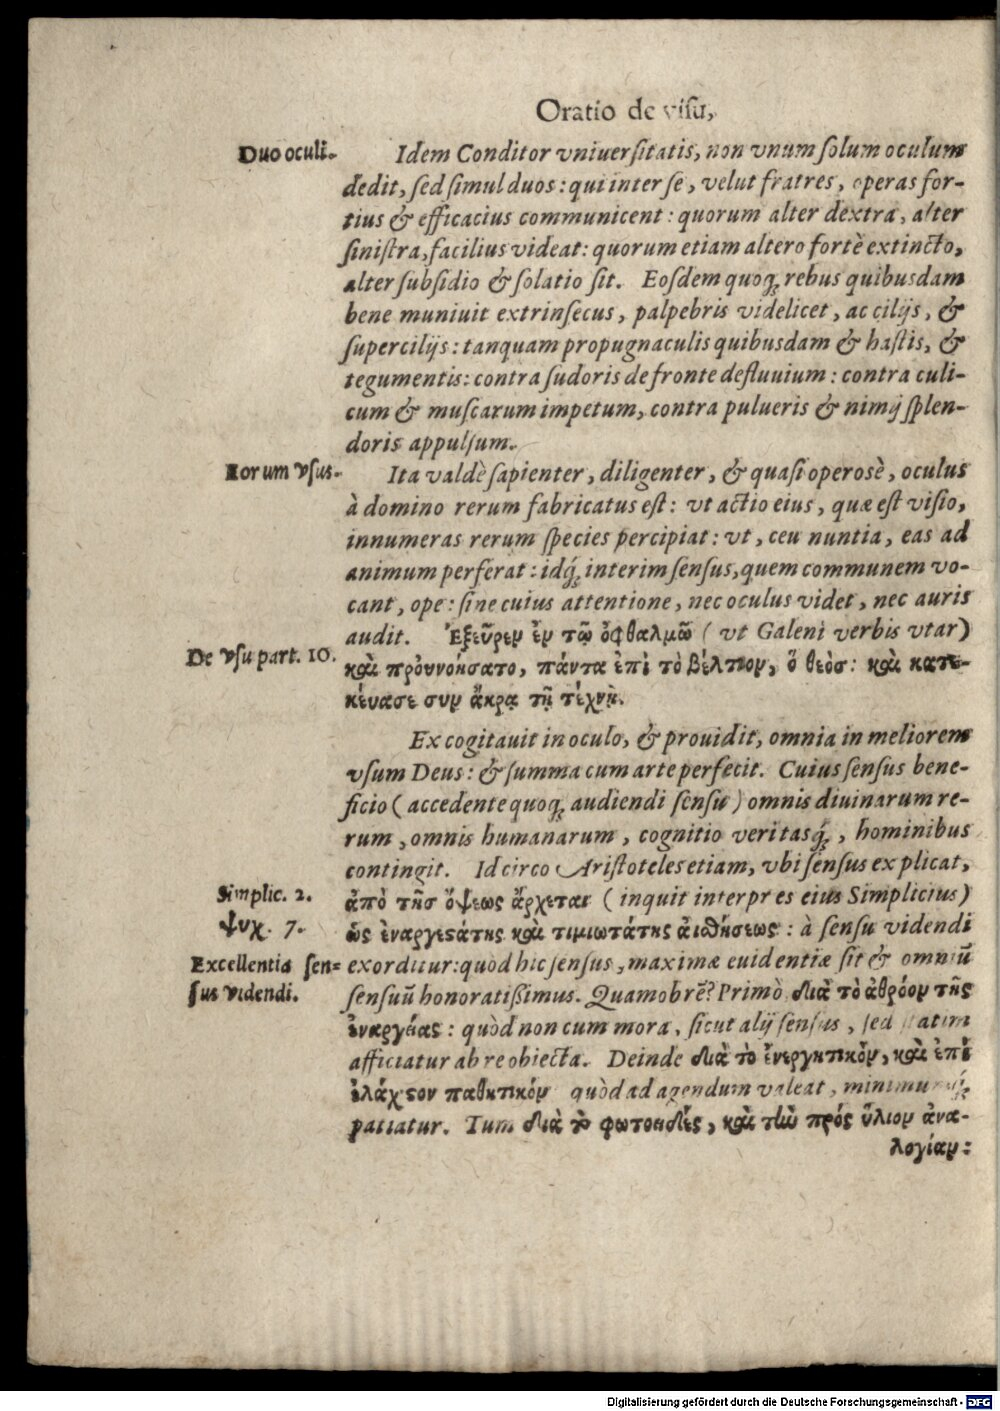 Oratio de visu,
Duo oculi.
Idem Conditor vniuersitatis, non vnum solum oculum
dedit, sed simul duos: qui inter se, velut fratres, operas for-
tius & efficacius communicent: quorum alter dextra, alter
sinistra, facilius videat: quorum etiam altero fortè extincto,
alter subsidio & solatio sit. Eosdem quoq; rebus quibusdam
bene muniuit extrinsecus, palpebris videlicet, ac cilijs, &
supercilijs: tanquam propugnaculis quibusdam & hastis, &
tegumentis: contra sudoris de fronte defluuium: contra culi-
cum & muscarum impetum, contra pulueris & nimij splen-
doris appulsum.
Eorum vsus.
Ita valdè sapienter, diligenter, & quasi operosè, oculus
à domino rerum fabricatus est: vt actio eius, quæ est visio,
innumeras rerum species percipiat: vt, ceu nuntia, eas ad
animum perferat: idq́; interim sensus, quem communem vo-
cant, ope: sine cuius attentione, nec oculus videt, nec auris
audit. Ἐξεῦρεν ἐν τῷ ὀφθαλμῶ (vt Galeni verbis vtar)
De vsu part. 10.
καὶ πρὀυνοήσατο, πάντα ἐπὶ τὸ βέλτιον, ὅ θεὸσ: καὶ κατε-
κέυασε συν ἄκρᾳ τῇ τέχνῃ.
Excogitauit in oculo, & prouidit, omnia in meliorem
vsum Deus: & summa cum arte perfecit. Cuius sensus bene-
ficio (accedente quoq; audiendi sensu) omnis diuinarum re-
rum, omnis humanarum, cognitio veritasq́;, hominibus
contingit. Idcirco Aristoteles etiam, vbi sensus explicat,
Simplic. 2.
ἀπὸ τῆσ ὄψεως ἄρχεται (inquit interpres eius Simplicius)
ψυχ. 7.
ὡς ἐναργεστάτης καὶ τιμιωτάτης ἀισθήσεως: à sensu videndi
Excellentia sen=
exorditur: quòd hic sensus, maximæ euidentiæ sit & omniū
sus videndi.
sensuū honoratißimus. Quamobrē? Primò διὰ τὸ ἀθρόον τῆς
ἐναργείας: quòd non cum mora, sicut alij sensus, sed statim
afficiatur ab re obiecta. Deinde διὰ τὸ ἐνεργητικὸν, καὶ ἐπὶ
ἐλάχιστον παθητικόν quòd ad agendum valeat, minimumq́;
patiatur. Tum διὰ τὸ φωτοειδὲς, καὶ τὴν πρός ὕλιον ἀνα-
λογίαν:
Digitalisierung gefördert durch die Deutsche Forschungsgemeinschaft - DFG